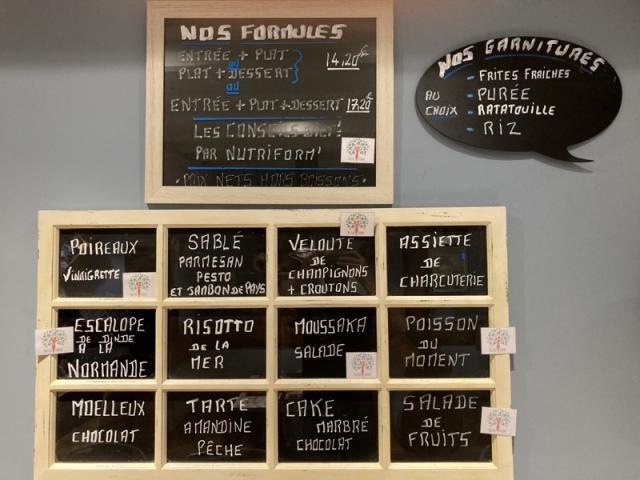 NOS FORMULES
ENTRÉE + PLAT
ou
PLAT + DESSERT
14,20€
ou
ENTRÉE + PLAT + DESSERT 17,20€
LES
PAR NUTRIFORM'
NOS GARNITURES
AU CHOIX
- FRITES FRAICHES
- PURÉE
- RATATOUILLE
- RIZ
POIREAUX
VINAIGRETTE
SABLÉ
PARMESAN
PESTO
ET JAMBON DE PAYS
VELOUTE
DE
CHAMPIGNONS
+ CROUTONS
ASSIETTE
DE
CHARCUTERIE
ESCALOPE
DE DINDE
A LA
NORMANDE
RISOTTO
DE LA
MER
MOUSSAKA
SALADE
POISSON
DU
MOMENT
MOELLEUX
CHOCOLAT
TARTE
AMANDINE
PÊCHE
CAKE
MARBRÉ
CHOCOLAT
SALADE
DE
FRUITS